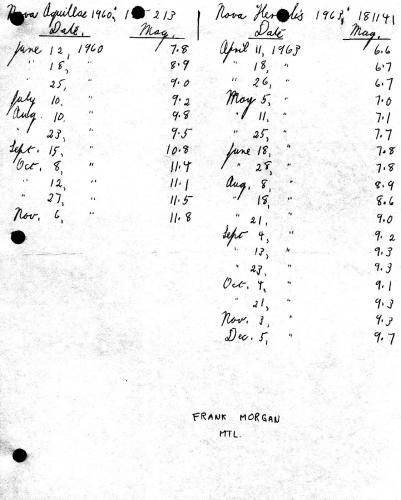 Nova Aquillae 1960; 213
Date. Mag.
June 12, 1960 7.8
" 18, " 8.9
25, " 9.0
July 10. " 9.2
Aug. 10. " 9.8
" 23, " 9.5
Sept. 15, " 10.8
Oct. 8, " 11.4
" 12, " 11.1
" 27, " 11.5
Nov. 6, " 11.8
Nova 1963; 181141
Date Mag.
April 11, 1963 6.6
" 18, " 6.7
" 26, " 6.7
May 5, " 7.0
" 11, " 7.1
" 25, " 7.7
June 18, " 7.8
" 28, " 7.8
Aug. 8, " 8.9
" 18, " 8.6
" 21, " 9.0
Sept 4, " 9.2
" 13, " 9.3
" 23, " 9.3
Oct. 4, " 9.1
" 21, " 9.3
Nov. 3, " 9.3
Dec. 5, " 9.7
FRANK MORGAN
MTL.